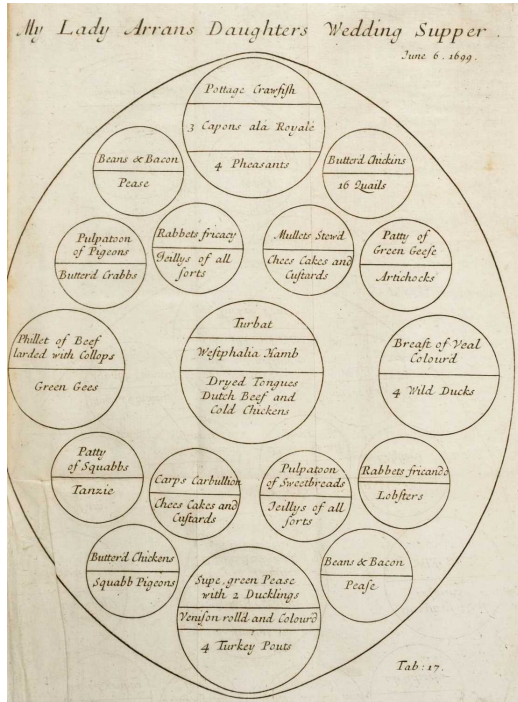 My Lady Arrans Daughters Wedding Supper.
June 6. 1699.
Pottage Crawfish
3 Capons ala Royale
4 Pheasants
Beans & Bacon
Pease
Butterd Chickins
16 Quails
Pulpatoon
of Pigeons
Butterd Crabbs
Rabbets fricacy
Jeillys of all
sorts
Mullets Stewd
Chees Cakes and
Custards
Patty of
Green Geese
Artichocks
Phillet of Beef
larded with Collops
Green Gees
Turbat
Westphalia Hamb
Dryed Tongues
Dutch Beef and
Cold Chickens
Breast of Veal
Colourd
4 Wild Ducks
Patty
of Squabbs
Tanzie
Carps Carbullion
Chees Cakes and
Custards
Pulpatoon
of Sweetbreads
Jeillys of all
sorts
Rabbets fricando
Lobsters
Butterd Chickens
Squabb Pigeons
Supe, green Pease
with 2 Ducklings
Venison rolld and Colourd
4 Turkey Pouts
Beans & Bacon
Pease
Tab: 17.